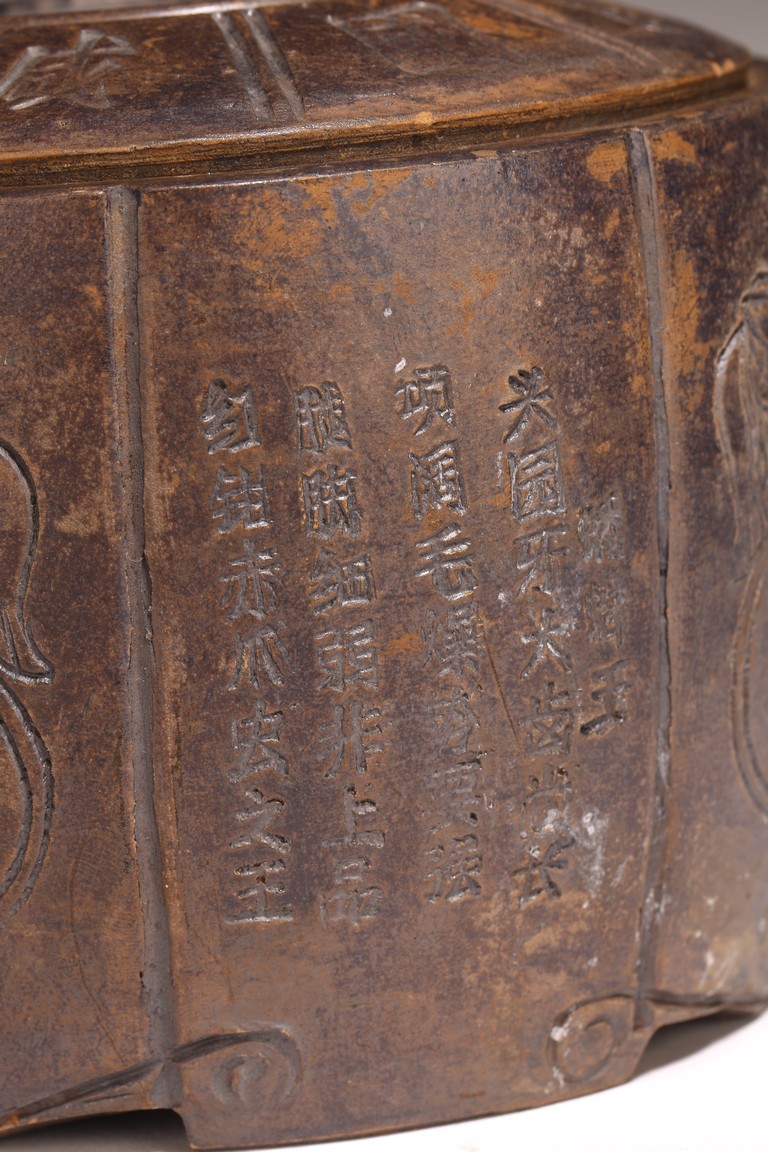 蟋蟀王
头园牙大齿尚长
项阔毛燥更强
腿脚细弱非上品
红钳赤爪虫之王